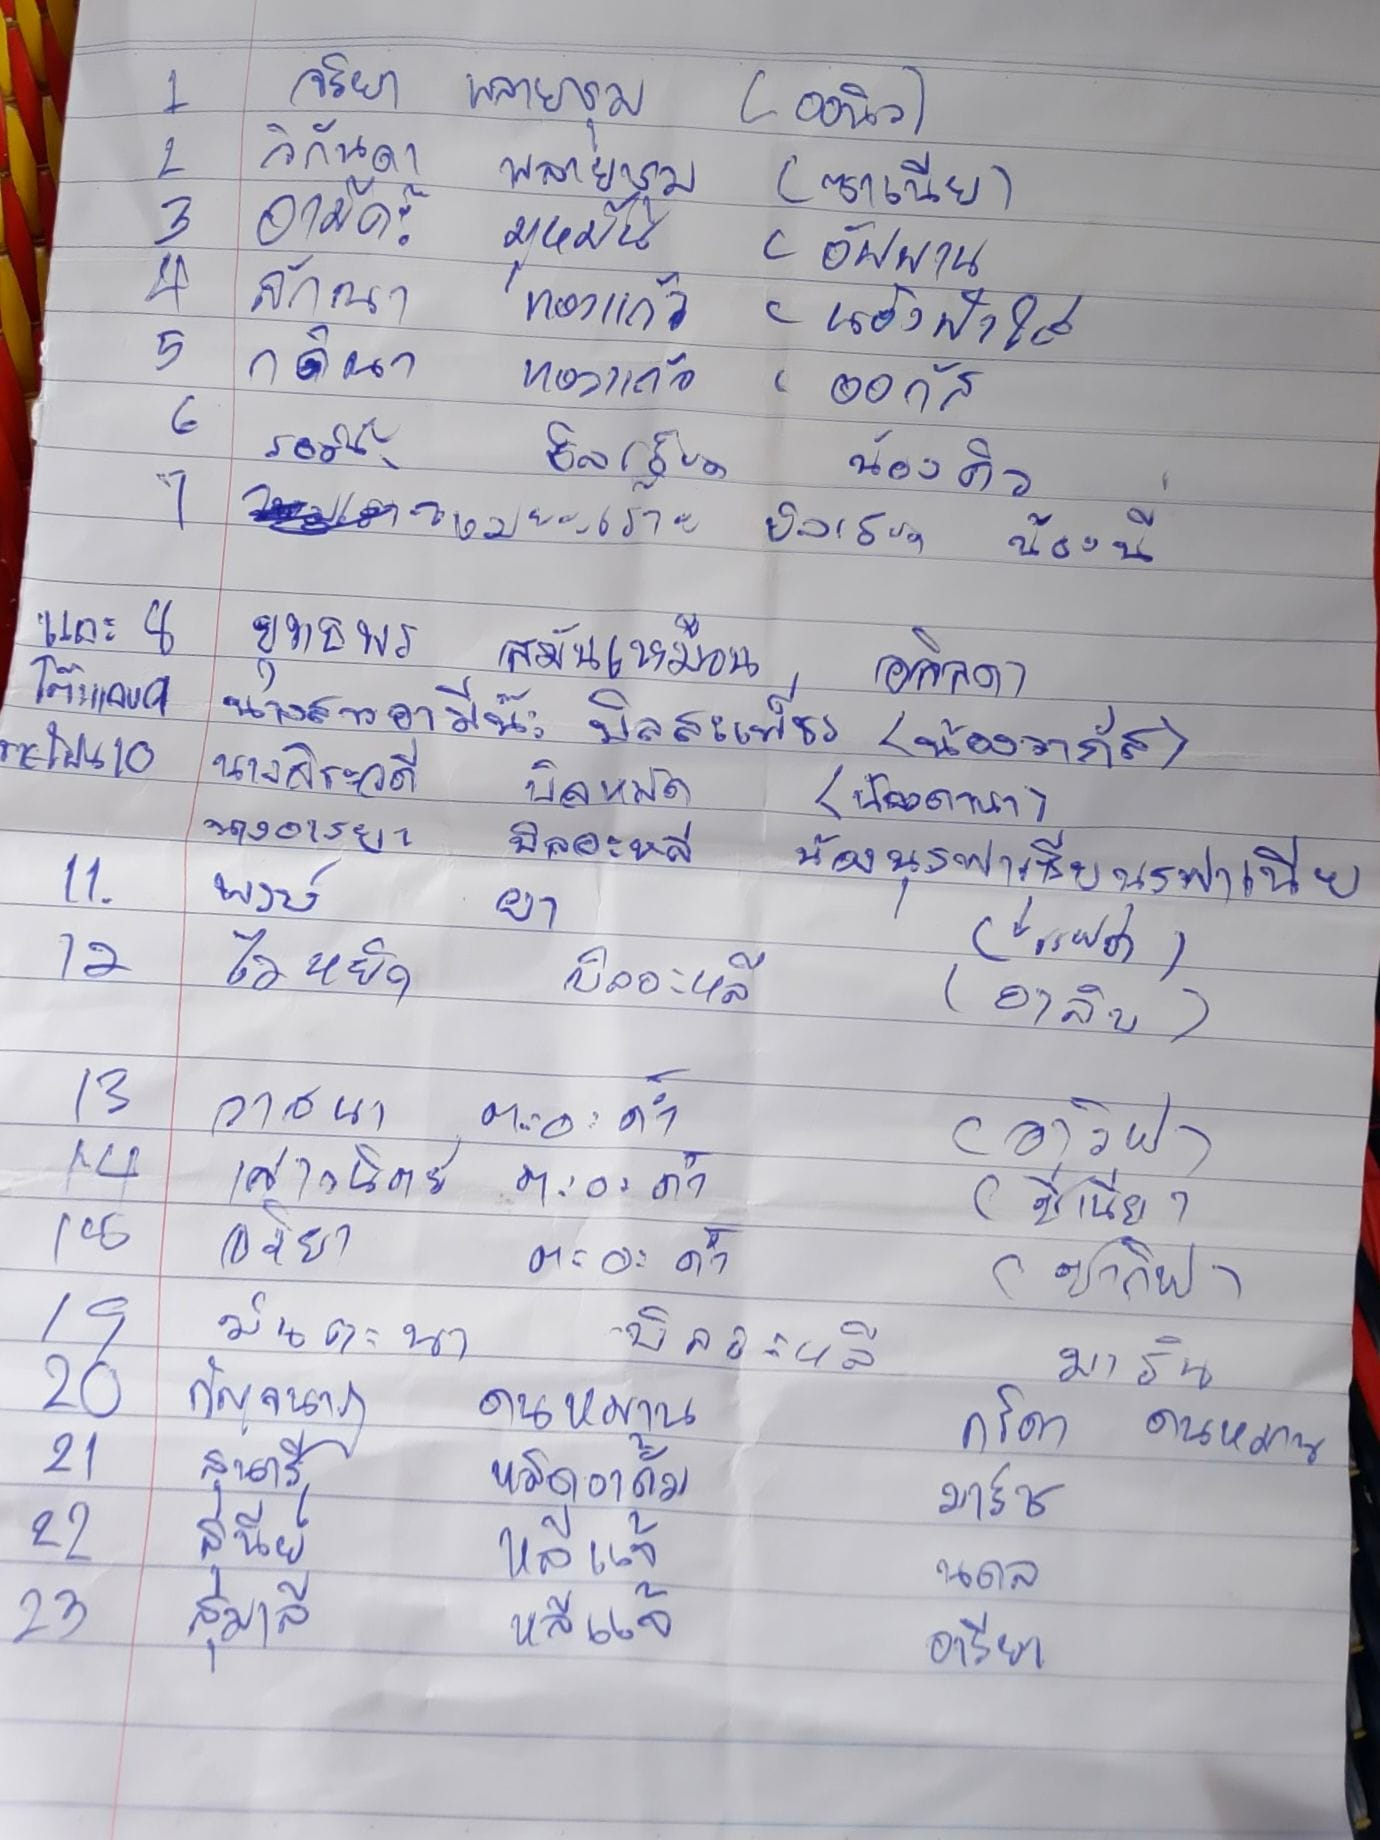 1 จริยา พลายชุม (ออนิว)
2 วิกันดา พลายชุม (ซาเนีย)
3 อามีด๊ะ มูหมัน (อัฟฟาน
4 ลักณา ทองแก้ว ( น้องฟ้าใส
5 ทองแก้ว ( ออกัส
6 น้องคิว
7 น้องนี
และ 8 ยุทธพร สมันเหมือน
9 นางสาวอามีน๊ะ บิลสะเพียร (น้องวาภัส)
10 นางสิระวดี บิลหมัด (น้องดานา)
นางอารยา บิลอะหลี น้องนุรฟาเซียนรฟาเนีย
11. พงษ์ ยา
12 ไวหยิด บิลอะหลี (อาลิบ)
13 วาสนา ตะอะด้ำ (อาวิฟา)
14 เสาวนิตย์ ตะอะด้ำ (ชีเนียา
15 อริยา ตะอะด้ำ (ซากีฟา)
19 มันตะนา บิลอะหลี มารีน
20 กัญจนาภ ดนหมาน กริดา ดนหมาน
21 สุนารี หมัดอาดั้ม มาร์ช
22 สุนีย์ หลีแจ้ นดล
23 สุมาลี หลีแจ้ อารียา